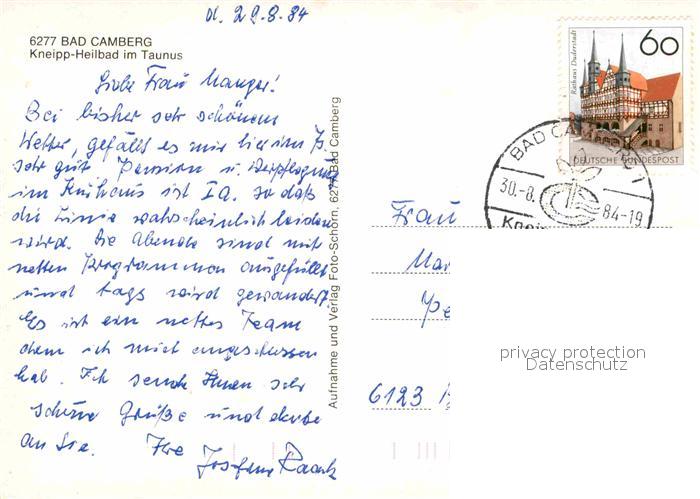 d. 29.8.84
6277 BAD CAMBERG
Kneipp-Heilbad im Taunus
Liebe Frau Manger!
Bei bisher sehr schönem
Wetter, gefällt es mir hier im
sehr gut Pension u. Verpflegung
im Kurhaus ist Ia. so daß
die Linie wahrscheinlich leiden
wird. Die Abende sind mit
netten Programmen ausgefüllt
und tags wird gewandert.
Es ist ein nettes Team
dem ich mich angeschlossen
hab. Ich sende Ihnen sehr
schöne Grüße und denke
an Sie. Ihre
Josefine
Aufnahme und Verlag Foto-Schorn, 6277 Bad Camberg
60
Rathaus Duderstadt
DEUTSCHE BUNDESPOST
BAD CAMBERG 1
30.-8. 84-19
Kneip
Frau
Man
6123
privacy protection
Datenschutz